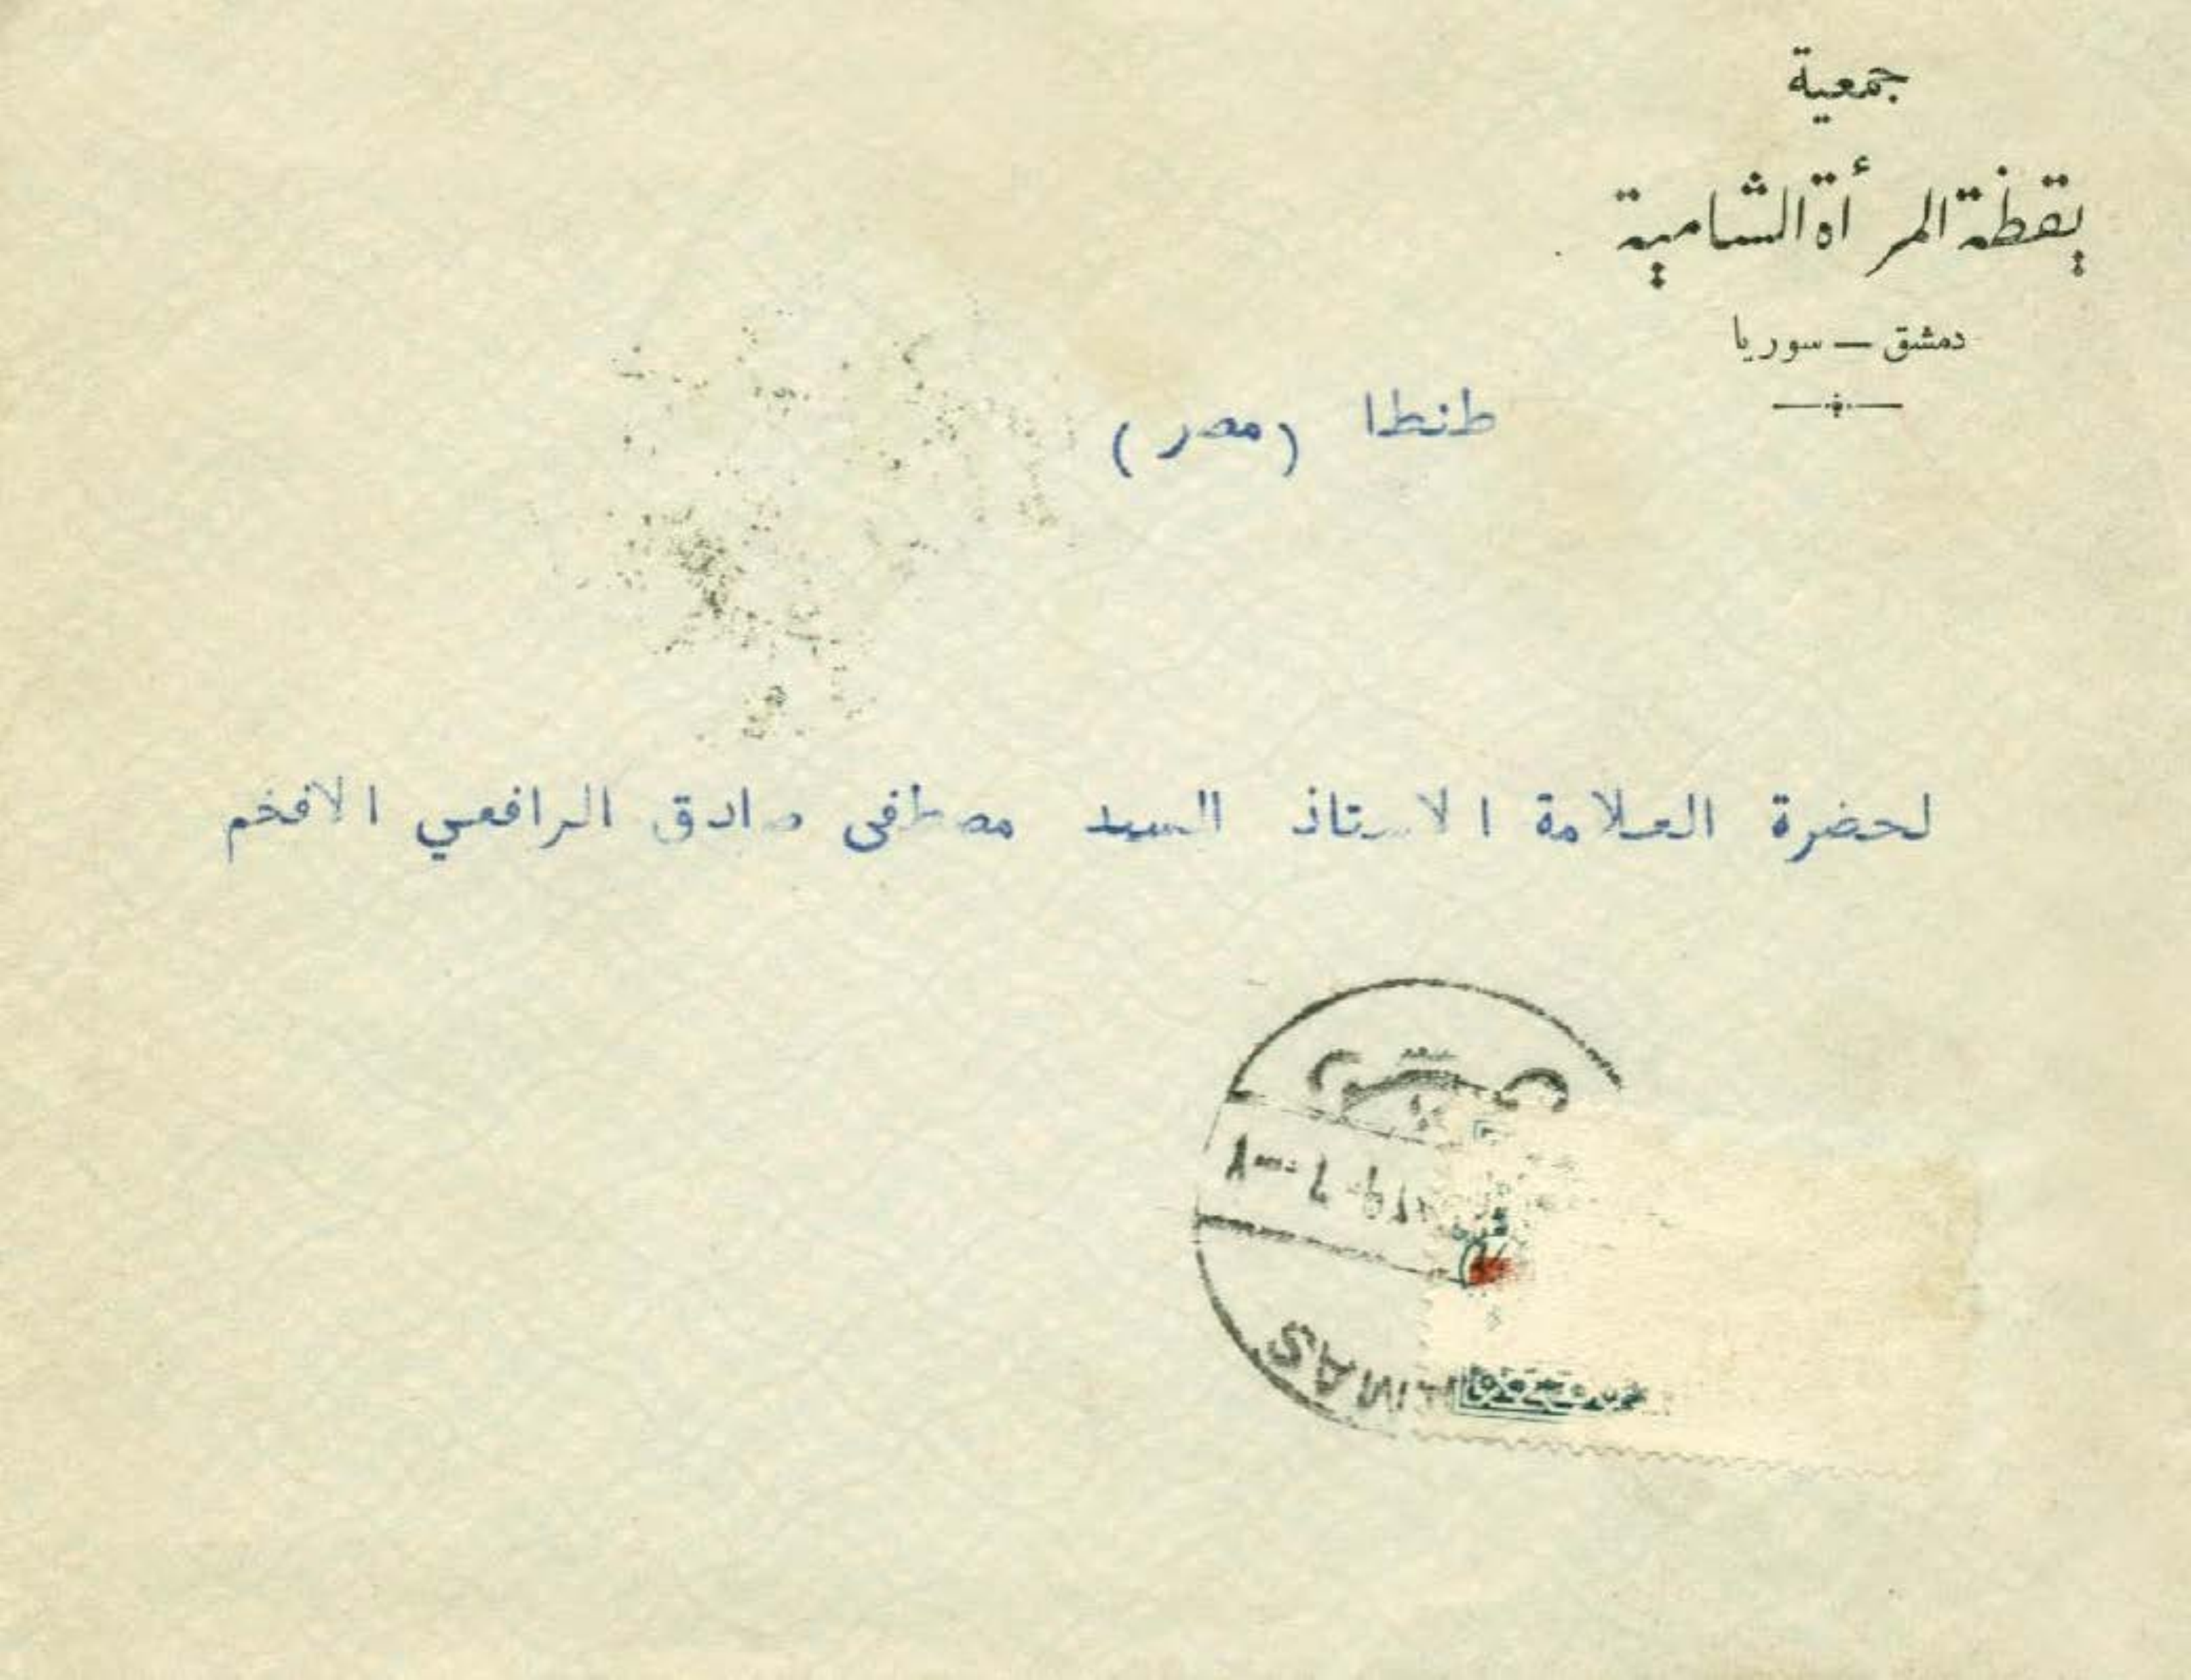 جمعية
يقظة المرأة الشامية
دمشق — سوريا
طنطا (مصر)
لحضرة العلامة الاستاذ السيد مصطفى صادق الرافعي الافخم
دمشق